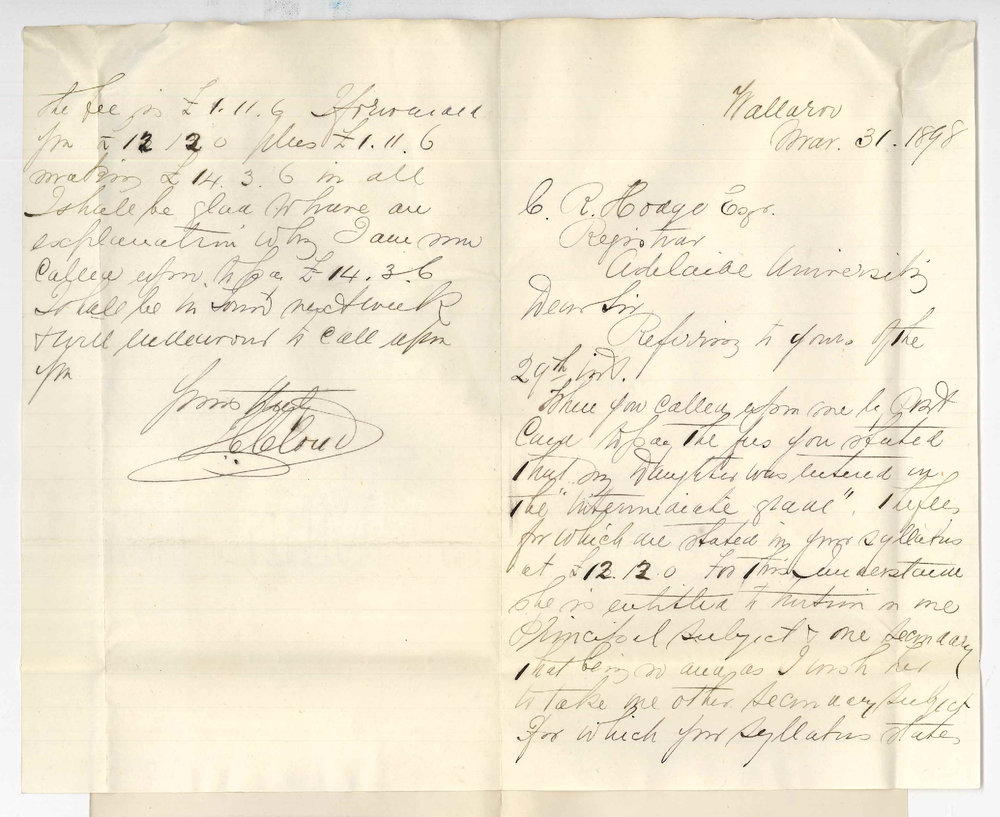 Wallaroo
Mar. 31. 1898
C. R. Hodge Esqr.
Registrar
Adelaide University
Dear Sir
Referring to yours of the
29th inst.
When you called upon me by Post
Card to pay the fees you stated
that my Daughter was entered in
the "intermediate grade". The fees
for which are stated in your syllabus
at £12.12.0 For this I understand
she is entitled to tuition in one
Principal subject & one secondary
that being so and as I wish her
to take one other secondary subject
for which your syllabus states
the fee is £1.11.6 I forwarded
you £12 12 0 plus £1.11.6
making £14.3.6 in all
I shall be glad to have an
explanation why I am now
called upon to pay £14.3.6
I shall be in Town next week
& will endeavour to call upon
you
Yours truly
Cloud